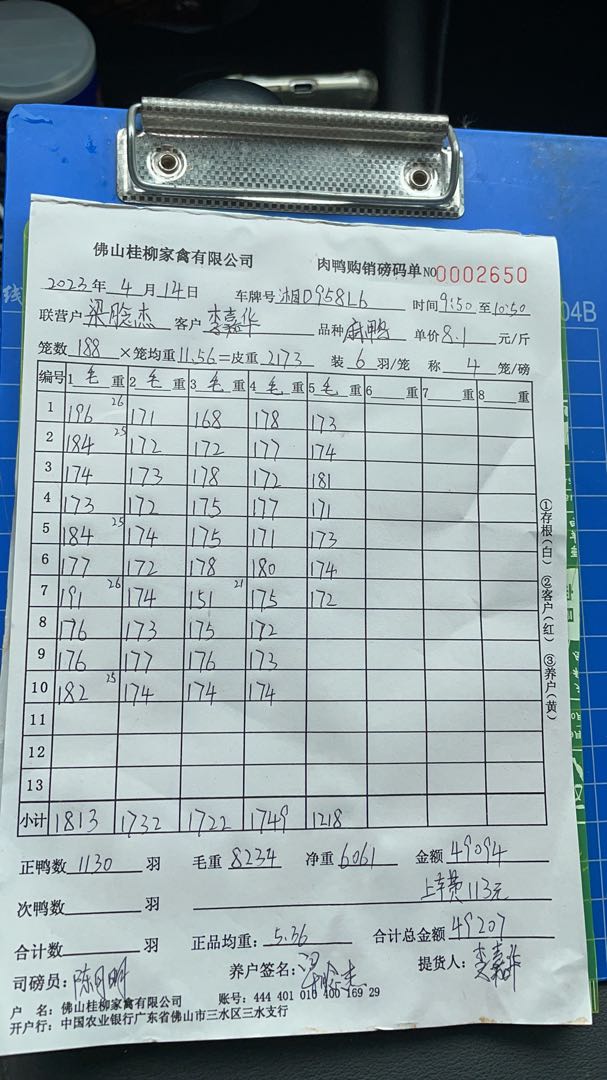 佛山桂柳家禽有限公司 肉鸭购销磅码单NO 0002650
2023年 4 月 14 日 车牌号 湘D958L6 时间 9:50 至 10:50
联营户 梁晓杰 客户 李嘉华 品种 麻鸭 单价 8.1 元/斤
笼数 188 ×笼均重 11.56 =皮重 2173 装 6 羽/笼 称 4 笼/磅
编号 1 毛 重 2 毛 重 3 毛 重 4 毛 重 5 毛 重 6 重 7 重 8 重
1 196 26 171 168 178 173
2 184 25 172 172 177 174
3 174 173 178 172 181
4 173 172 175 177 171
5 184 25 174 175 171 173
6 177 172 178 180 174
7 191 26 174 151 21 175 172
8 176 173 175 172
9 176 177 176 173
10 182 25 174 174 174
11
12
13
小计 1813 1732 1722 1749 1218
正鸭数 1130 羽 毛重 8234 净重 6061 金额 49094
次鸭数 羽 上车费113元
合计数 羽 正品均重: 5.36 合计总金额 49207
司磅员: 陈明 养户签名: 梁晓杰 提货人: 李嘉华
户 名: 佛山桂柳家禽有限公司 账号: 444 401 010 400 169 29
开户行: 中国农业银行广东省佛山市三水区三水支行
①存根(白) ②客户(红) ③养户(黄)
04B